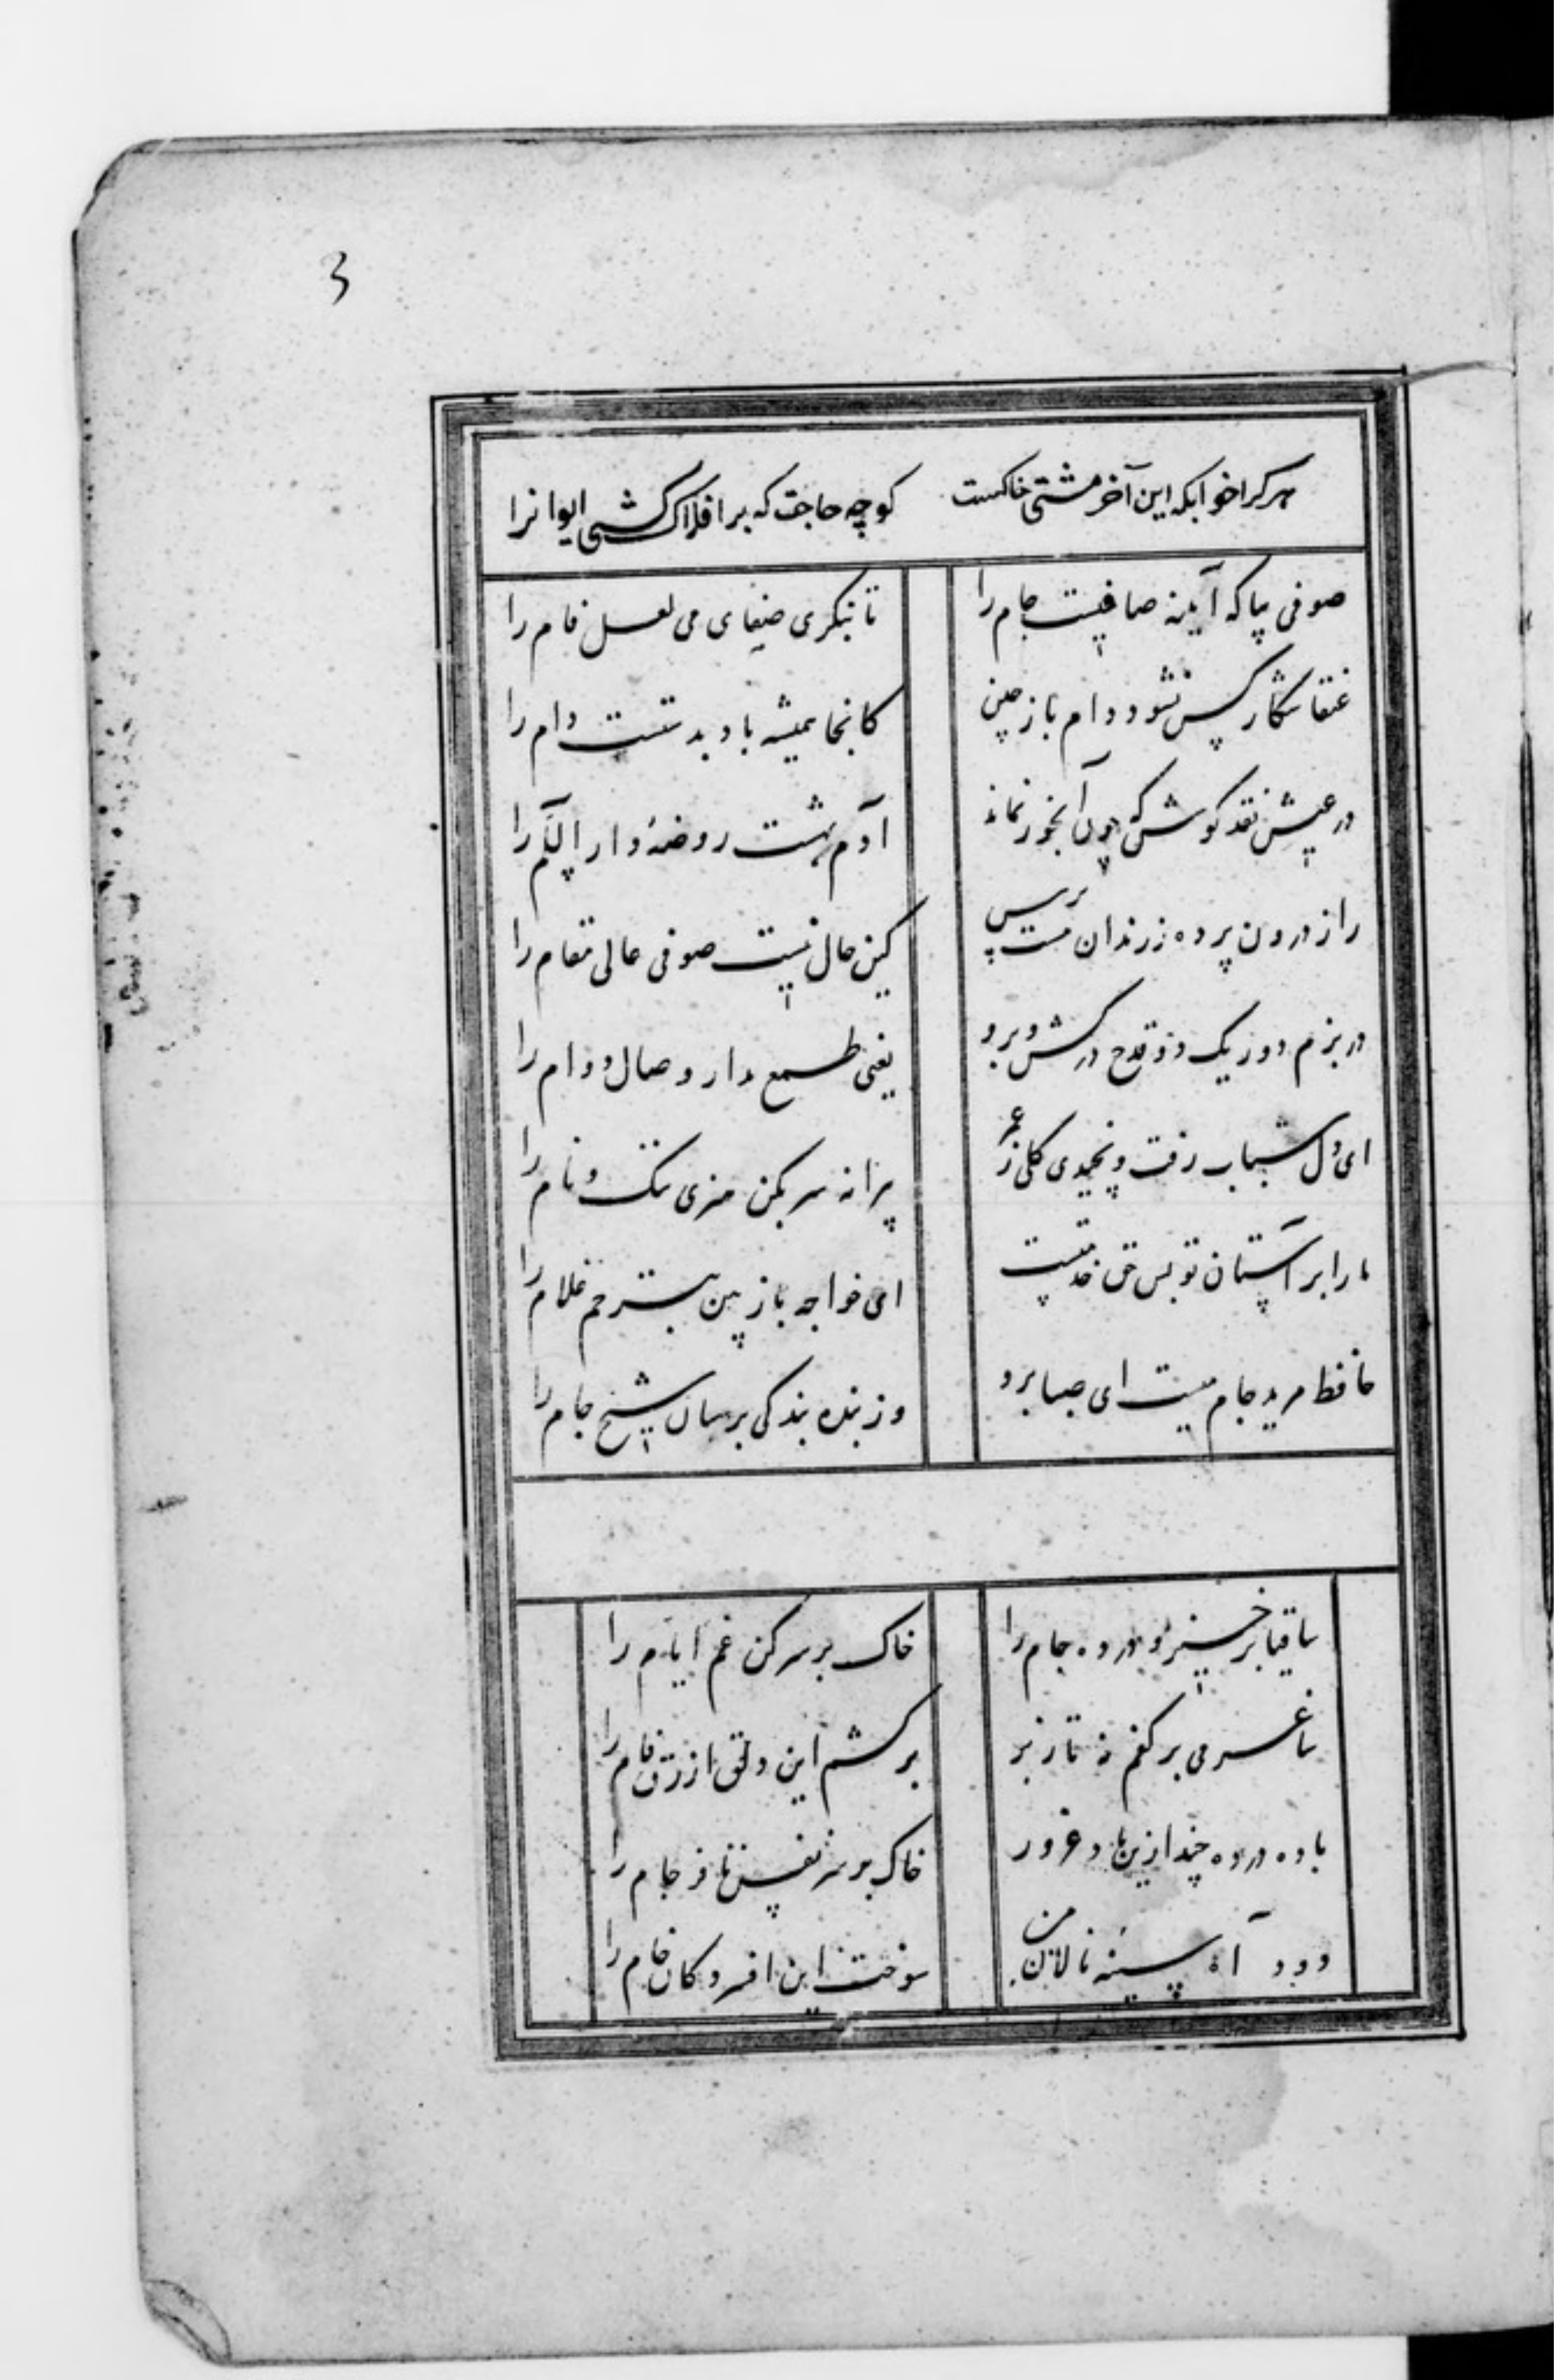 3
هر کرا خوابکه این آخر مشتی خاکست کو چه حاجت که بر افلاک کشی ایوانرا
صوفی بیا که آینه صافیست جام را تا بنکری صفای می لعل فام را
عنقا شکار کس نشود دام باز چین کانجا همیشه باد بدستست دام را
در عیش نقد کوش که چون آبخور نماند آدم بهشت روضهٔ دار السلام را
راز درون پرده ز رندان مست پرس کین حال نیست صوفی عالی مقام را
در بزم دور یک دو قدح در کش و برو یعنی طمع مدار وصال دوام را
ای دل شباب رفت و نچیدی کلی ز عمر پیرانه سر بکن هنری ننک و نام را
ما را بر آستان تو بس حق خدمتست ای خواجه باز بین بترحم غلام را
حافظ مرید جام میست ای صبا برو وز بنده بندکی برسان شیخ جام را
ساقیا برخیز و در ده جام را خاک بر سر کن غم ایام را
ساغر می بر کفم نه تا ز بر بر کشم این دلق ازرق فام را
باده در ده چند ازین باد غرور خاک بر سر نفس نافرجام را
دود آه سینه نالان من سوخت این افسردکان خام را